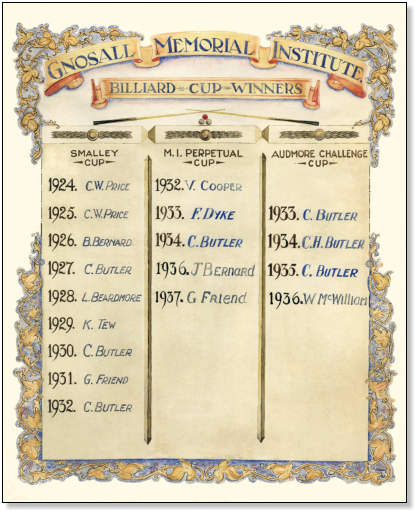 GNOSALL MEMORIAL INSTITUTE
BILLIARD-CUP-WINNERS
SMALLEY
CUP
1924. C.W. PRICE
1925. C.W. PRICE
1926. B. BERNARD.
1927. C. BUTLER
1928. L. BEARDMORE
1929. K. TEW
1930. C. BUTLER
1931. G. FRIEND
1932. C. BUTLER
M. I. PERPETUAL
CUP
1932. V. COOPER
1933. F. DYKE
1934. C. BUTLER
1936. J BERNARD
1937. G FRIEND
AUDMORE CHALLENGE
CUP
1933. C. BUTLER
1934. C.H. BUTLER
1935. C. BUTLER
1936. W MCWILLIAM